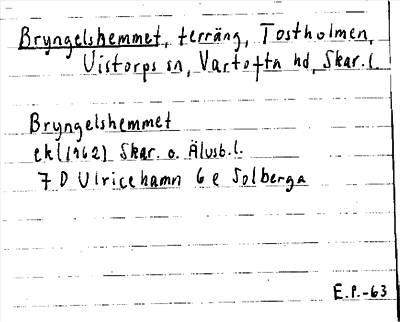 Bryngelshemmet, terräng, Tostholmen,
Vistorps sn, Vartofta hd, Skar. l.
Bryngelshemmet
ekl (1962) Skar. o. Älvsb. l.
7 D Ulricehamn 6 e Solberga
E.P.-63